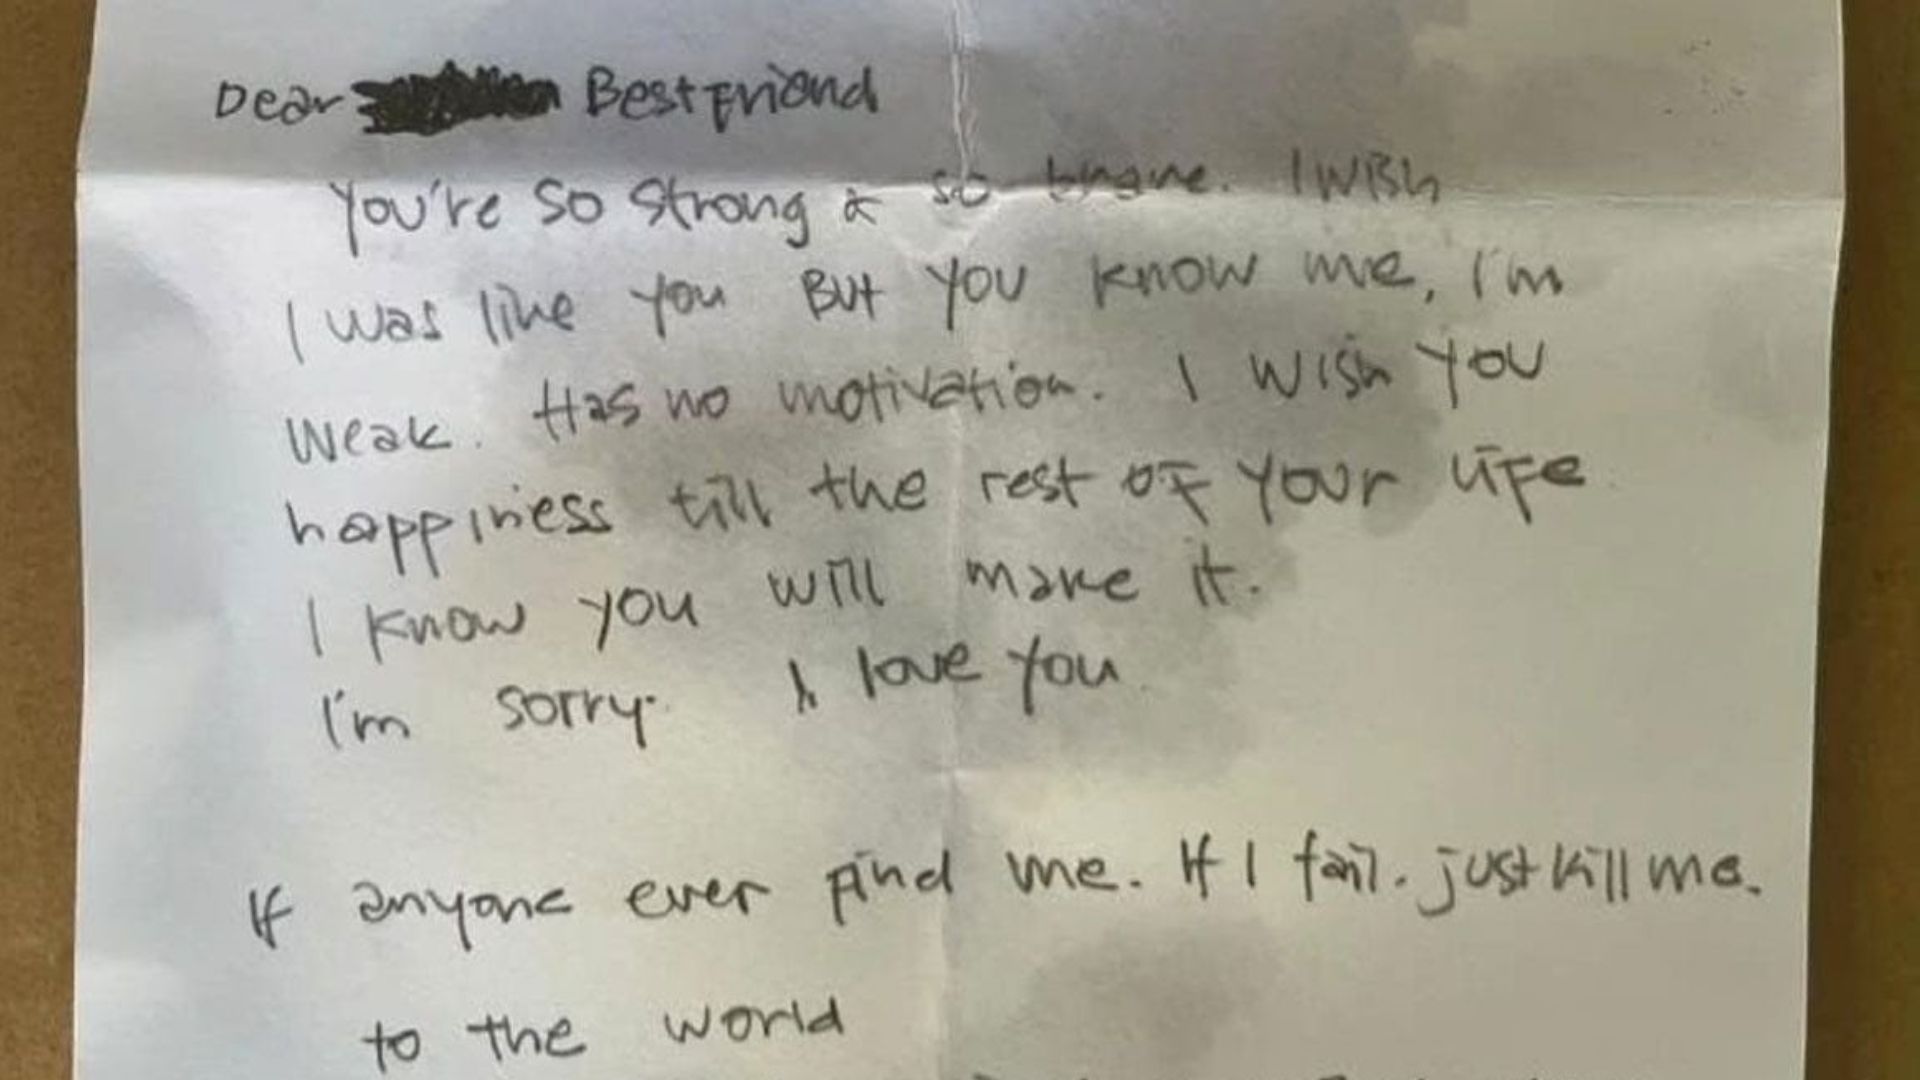 Dear Bestfriend
You're so strong & so brave. I wish
I was like you But you know me, I'm
weak. Has no motivation. I wish you
happiness till the rest of your life
I know you will make it.
I'm sorry. I love you
If anyone ever find me. If I fail. just kill me.
to the world